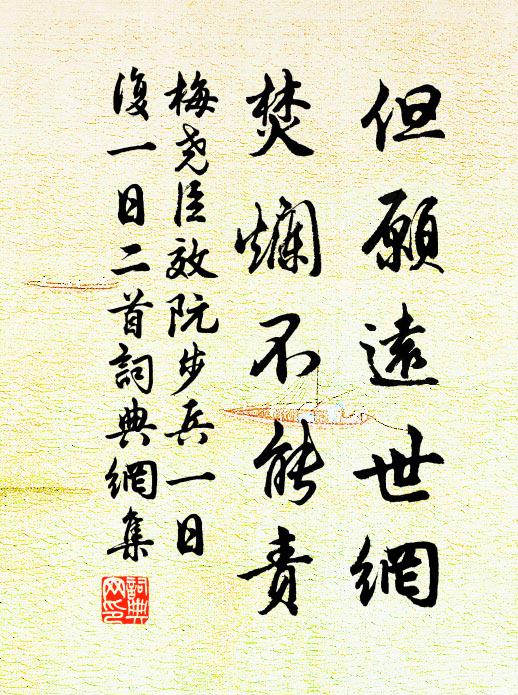 但願遠世網
焚爛不能責
梅堯臣效阮步兵一日
復一日二首詞典網集
詞典網印